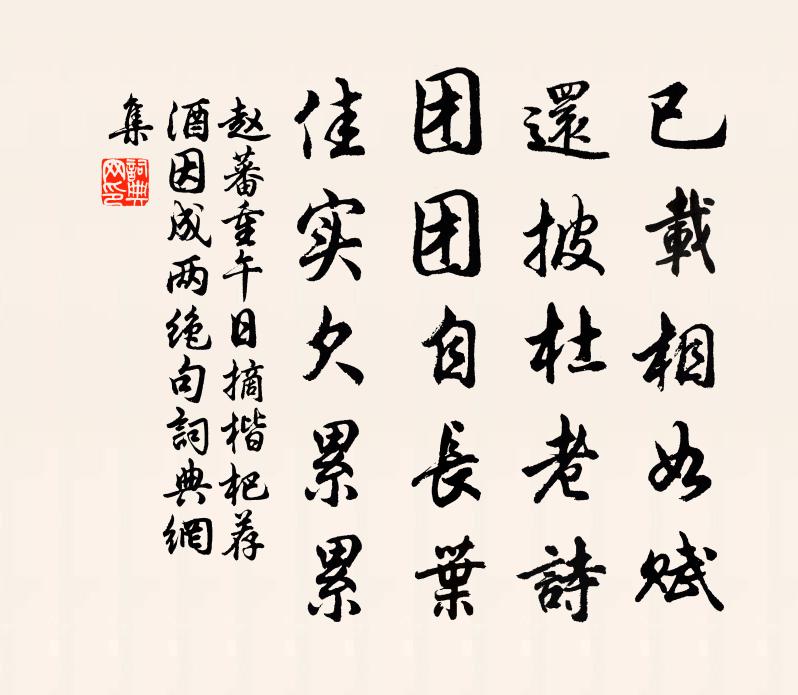 已載相如赋
還披杜老詩
团团自長葉
佳实欠累累
赵蕃重午日摘楷杷荐
酒因成两绝句詞典網
集
詞典網印